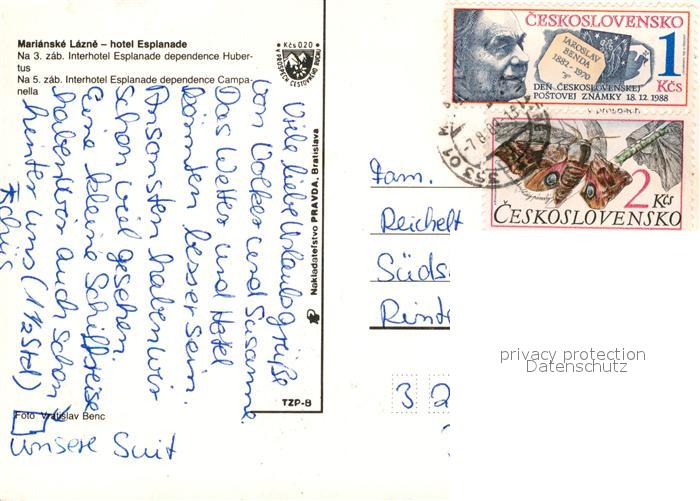 Mariánské Lázně – hotel Esplanade
Na 3. záb. Interhotel Esplanade dependence Huber-
tus
Na 5. záb. Interhotel Esplanade dependence Campa-
nella
Kčs 0.20
Viele liebe Urlaubsgrüße
von Volker und Susanne.
Das Wetter und Hotel
könnten besser sein.
Ansonsten haben wir
schon viel gesehen.
Eine kleine Schiffsreise
haben wir auch schon
hinter uns (1 1/2 Std)
Tschüs
unsere Suit
Foto Vratislav Benc
Nakladateľstvo PRAVDA, Bratislava
TZP-8
ČESKOSLOVENSKO
JAROSLAV
BENDA
1882-1970
1
Kčs
DEN ČESKOSLOVENSKÉ
POŠTOVNÍ ZNÁMKY 18.12.1988
353 01
2
Kčs
ČESKOSLOVENSKO
Fam.
Reichelt
Süds
Rint
3 2
privacy protection
Datenschutz